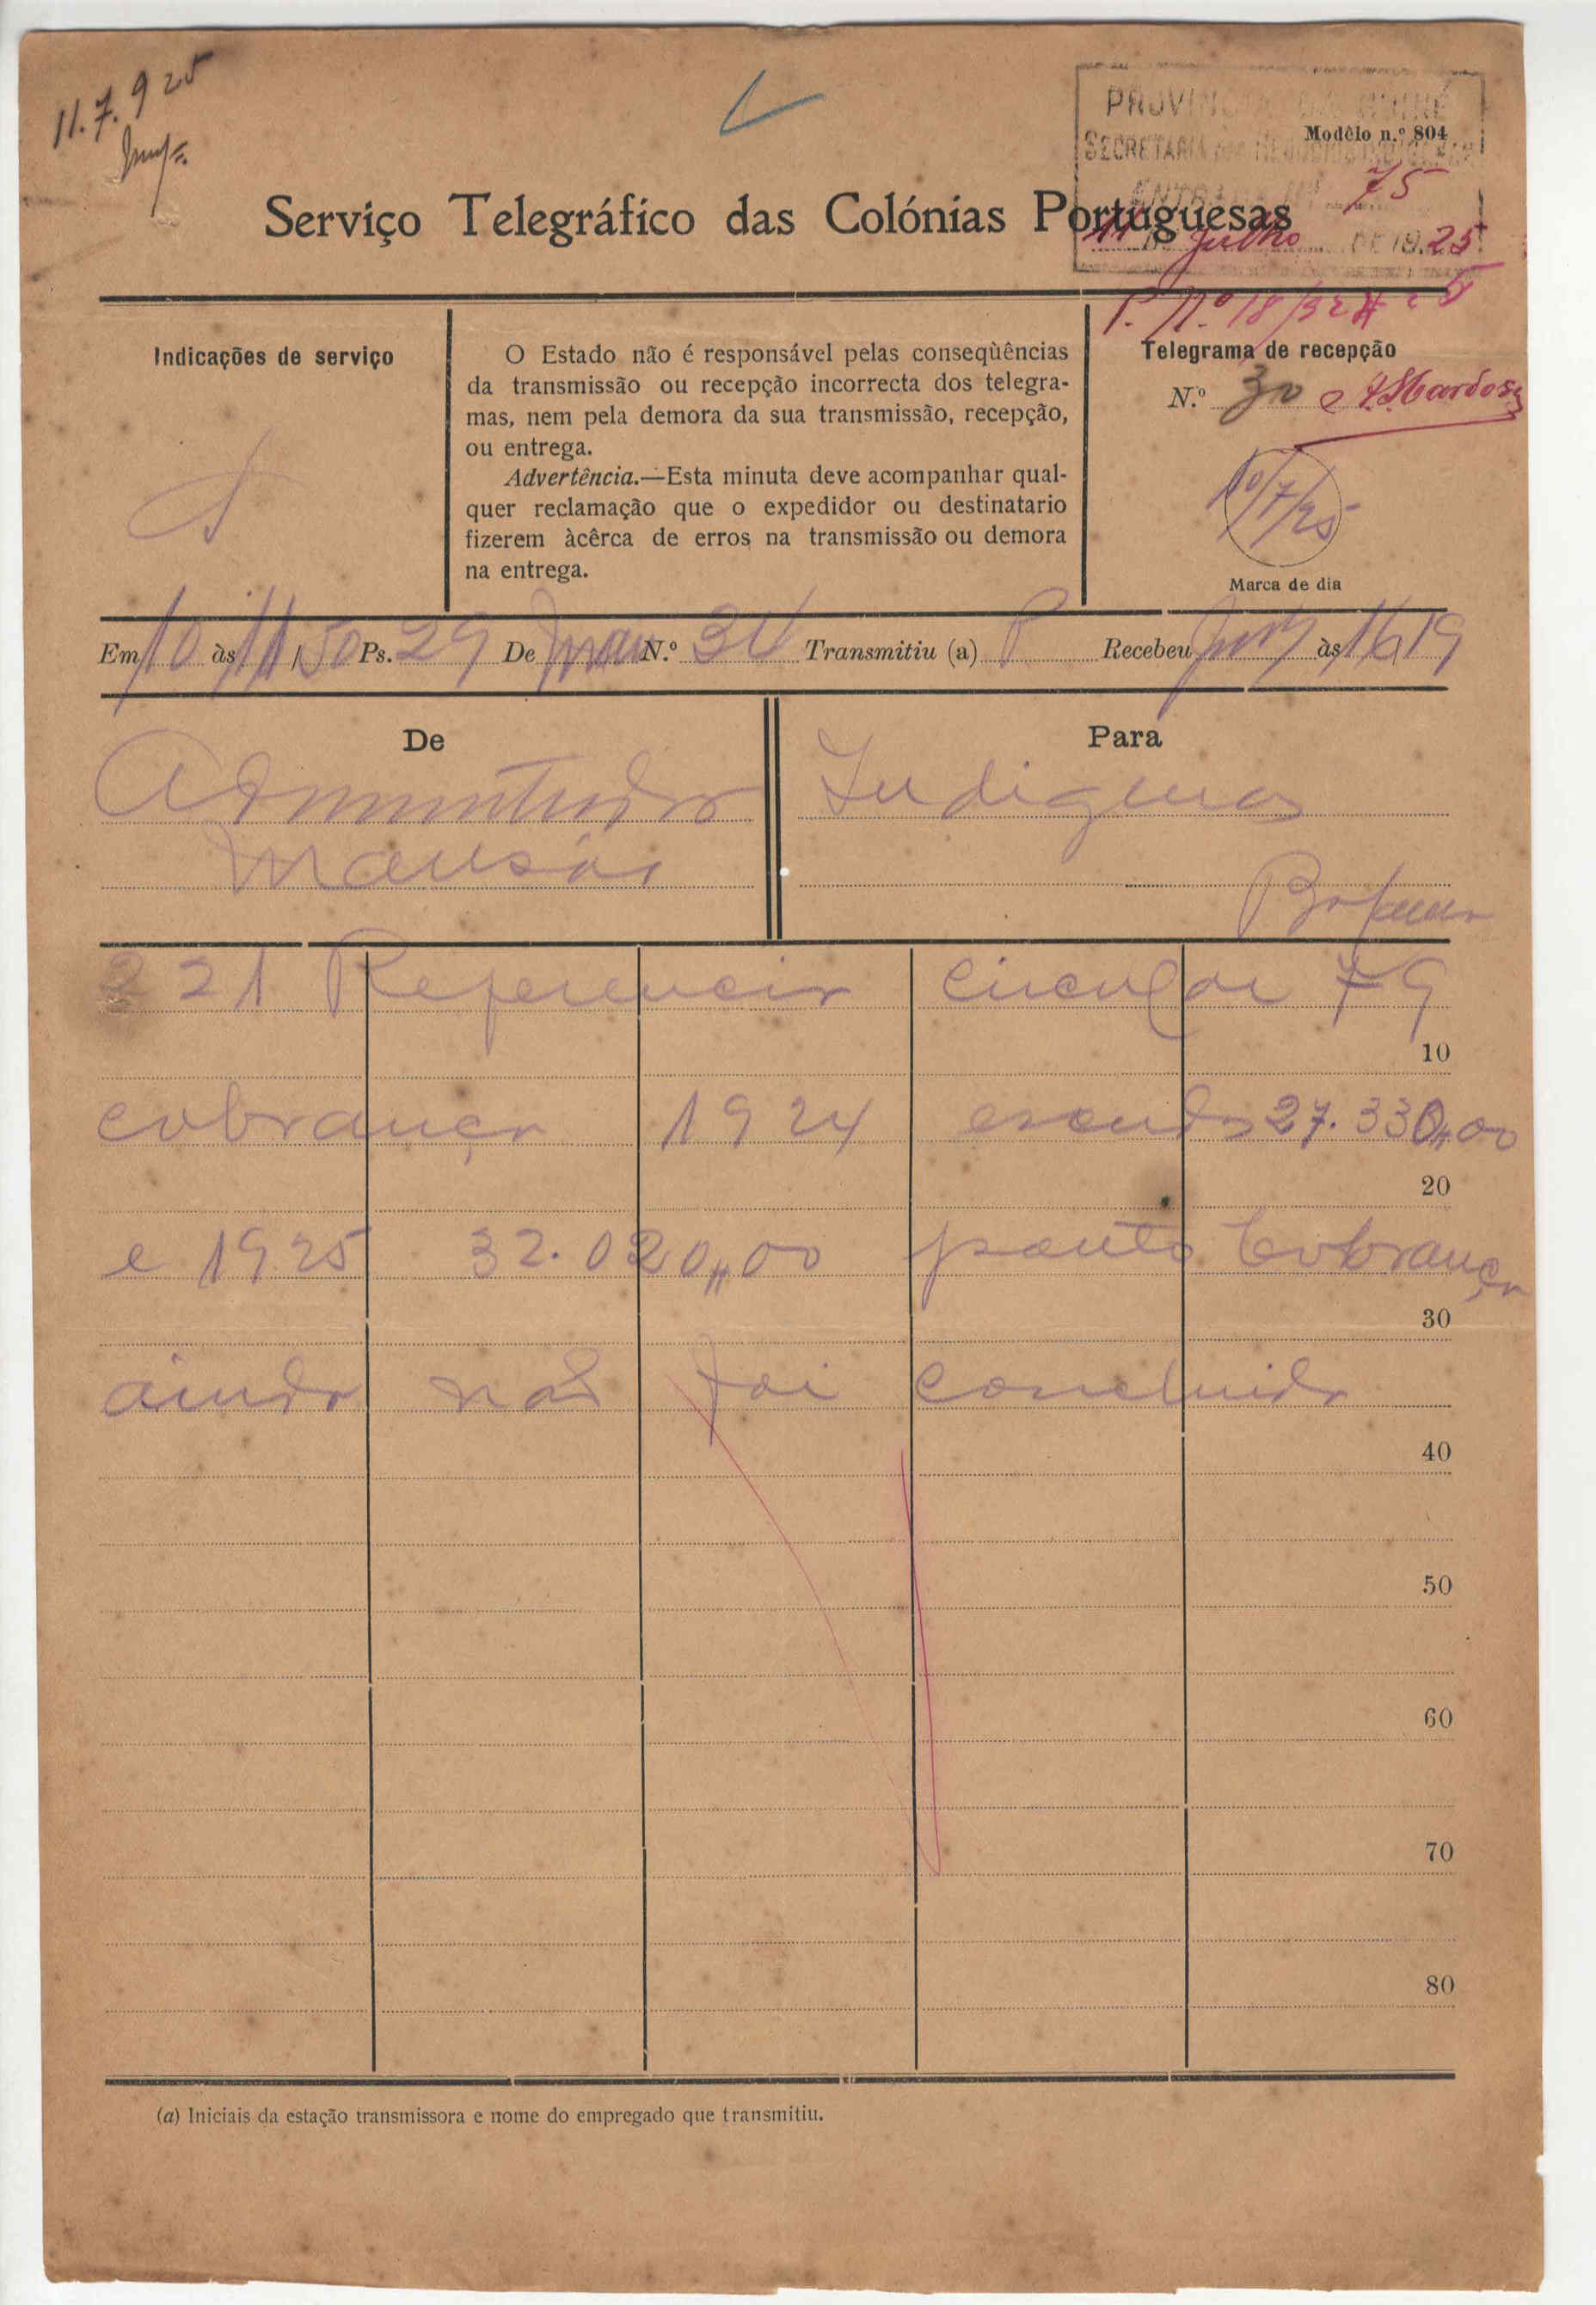 11.7.925
PROVINCIA DA GUINÉ
Modêlo n.º 804
SECRETARIA DOS NEGOCIOS INDIGENAS
ENTRADA Nº 75
Serviço Telegráfico das Colónias Portuguesas
11 Julho DE 1925
P. N.º 18/
Indicações de serviço
O Estado não é responsável pelas conseqùências
da transmissão ou recepção incorrecta dos telegra-
mas, nem pela demora da sua transmissão, recepção,
ou entrega.
Advertência.—Esta minuta deve acompanhar qual-
quer reclamação que o expedidor ou destinatario
fizerem àcêrca de erros na transmissão ou demora
na entrega.
Telegrama de recepção
N.º 30
10/7/25
Marca de dia
Em 10 às 11/50 Ps. 29 De N.º 30 Transmitiu (a) P Recebeu às 16,19
De
Administrador
Mansôa
Para
Indigenas
Bolama
221 Referencia circular 79
10
cobrança 1924 escudos 27.330,,00
20
e 1925 32.020,,00 ponto Cobrança
30
ainda não foi concluida
40
50
60
70
80
(a) Iniciais da estação transmissora e nome do empregado que transmitiu.